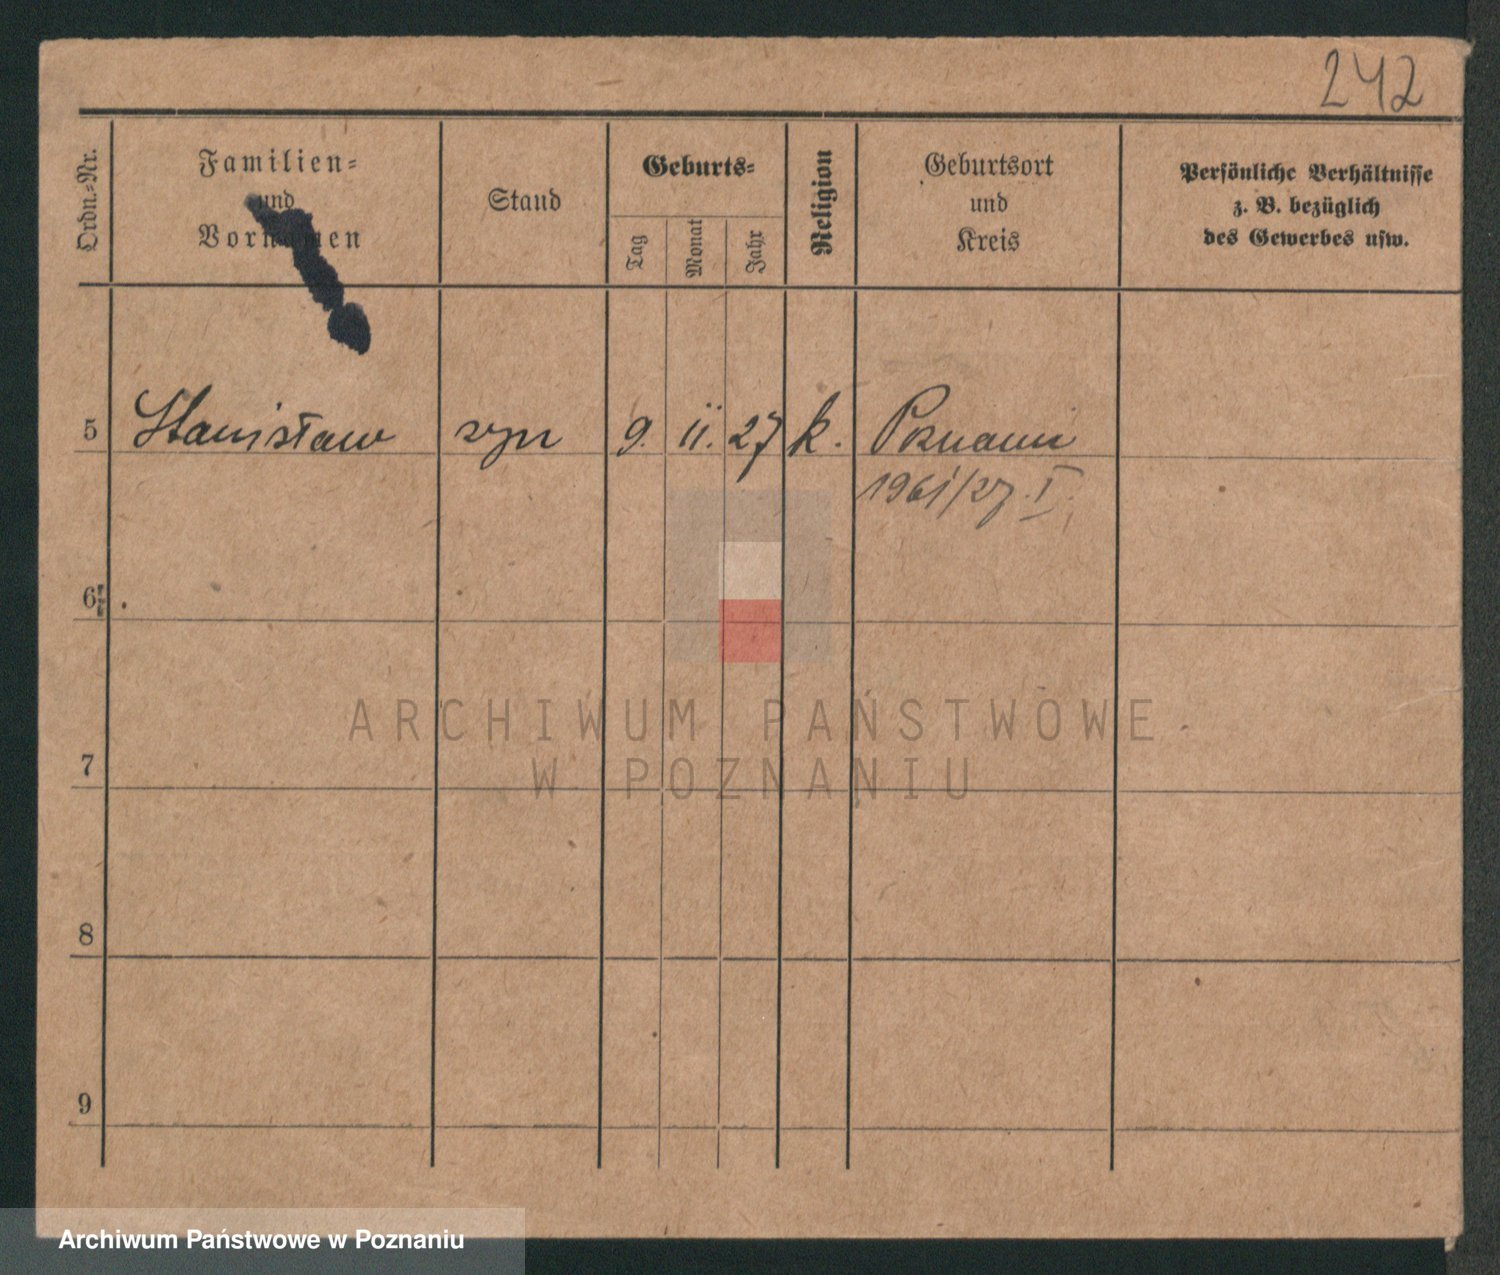 242
Ordn.-Nr.
Familien-
und
Vornamen
Stand
Geburts-
Tag
Monat
Jahr
Religion
Geburtsort
und
Kreis
Persönliche Verhältnisse
z. B. bezüglich
des Gewerbes usw.
5 Stanisław syn 9. II. 27 k. Poznań
1961/27. I
6
ARCHIWUM PAŃSTWOWE
7
W POZNANIU
8
9
Archiwum Państwowe w Poznaniu